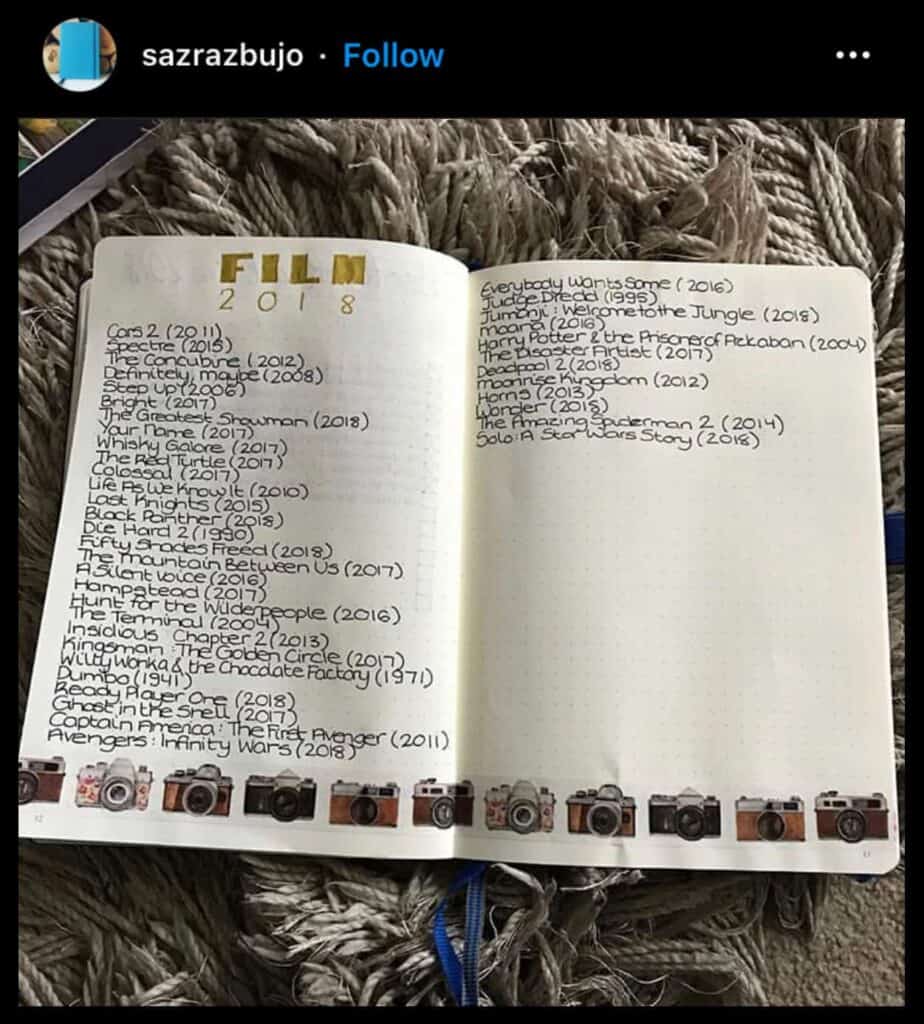 sazrazbujo · Follow
FILM
2018
Cars 2 (2011)
Spectre (2015)
The Concubine (2012)
Definitely, maybe (2008)
Step Up (2006)
Bright (2017)
The Greatest Showman (2018)
Your Name (2017)
Whisky Galore (2017)
The Red Turtle (2017)
Colossal (2017)
Life As We Know It (2010)
Last Knights (2015)
Black Panther (2018)
Die Hard 2 (1990)
Fifty Shades Freed (2018)
The Mountain Between Us (2017)
A Silent Voice (2016)
Hampstead (2017)
Hunt for the Wilderpeople (2016)
The Terminal (2004)
Insidious Chapter 2 (2013)
Kingsman : The Golden Circle (2017)
Willy Wonka & the Chocolate Factory (1971)
Dumbo (1941)
Ready Player One (2018)
Ghost in the Shell (2017)
Captain America : The First Avenger (2011)
Avengers : Infinity Wars (2018)
12
Everybody Wants Some (2016)
Judge Dredd (1995)
Jumanji : Welcome to the Jungle (2018)
Moana (2016)
Harry Potter & the Prisoner of Azkaban (2004)
The Disaster Artist (2017)
Deadpool 2 (2018)
Moonrise Kingdom (2012)
Horns (2013)
Wonder (2018)
The Amazing Spiderman 2 (2014)
Solo : A Star Wars Story (2018)